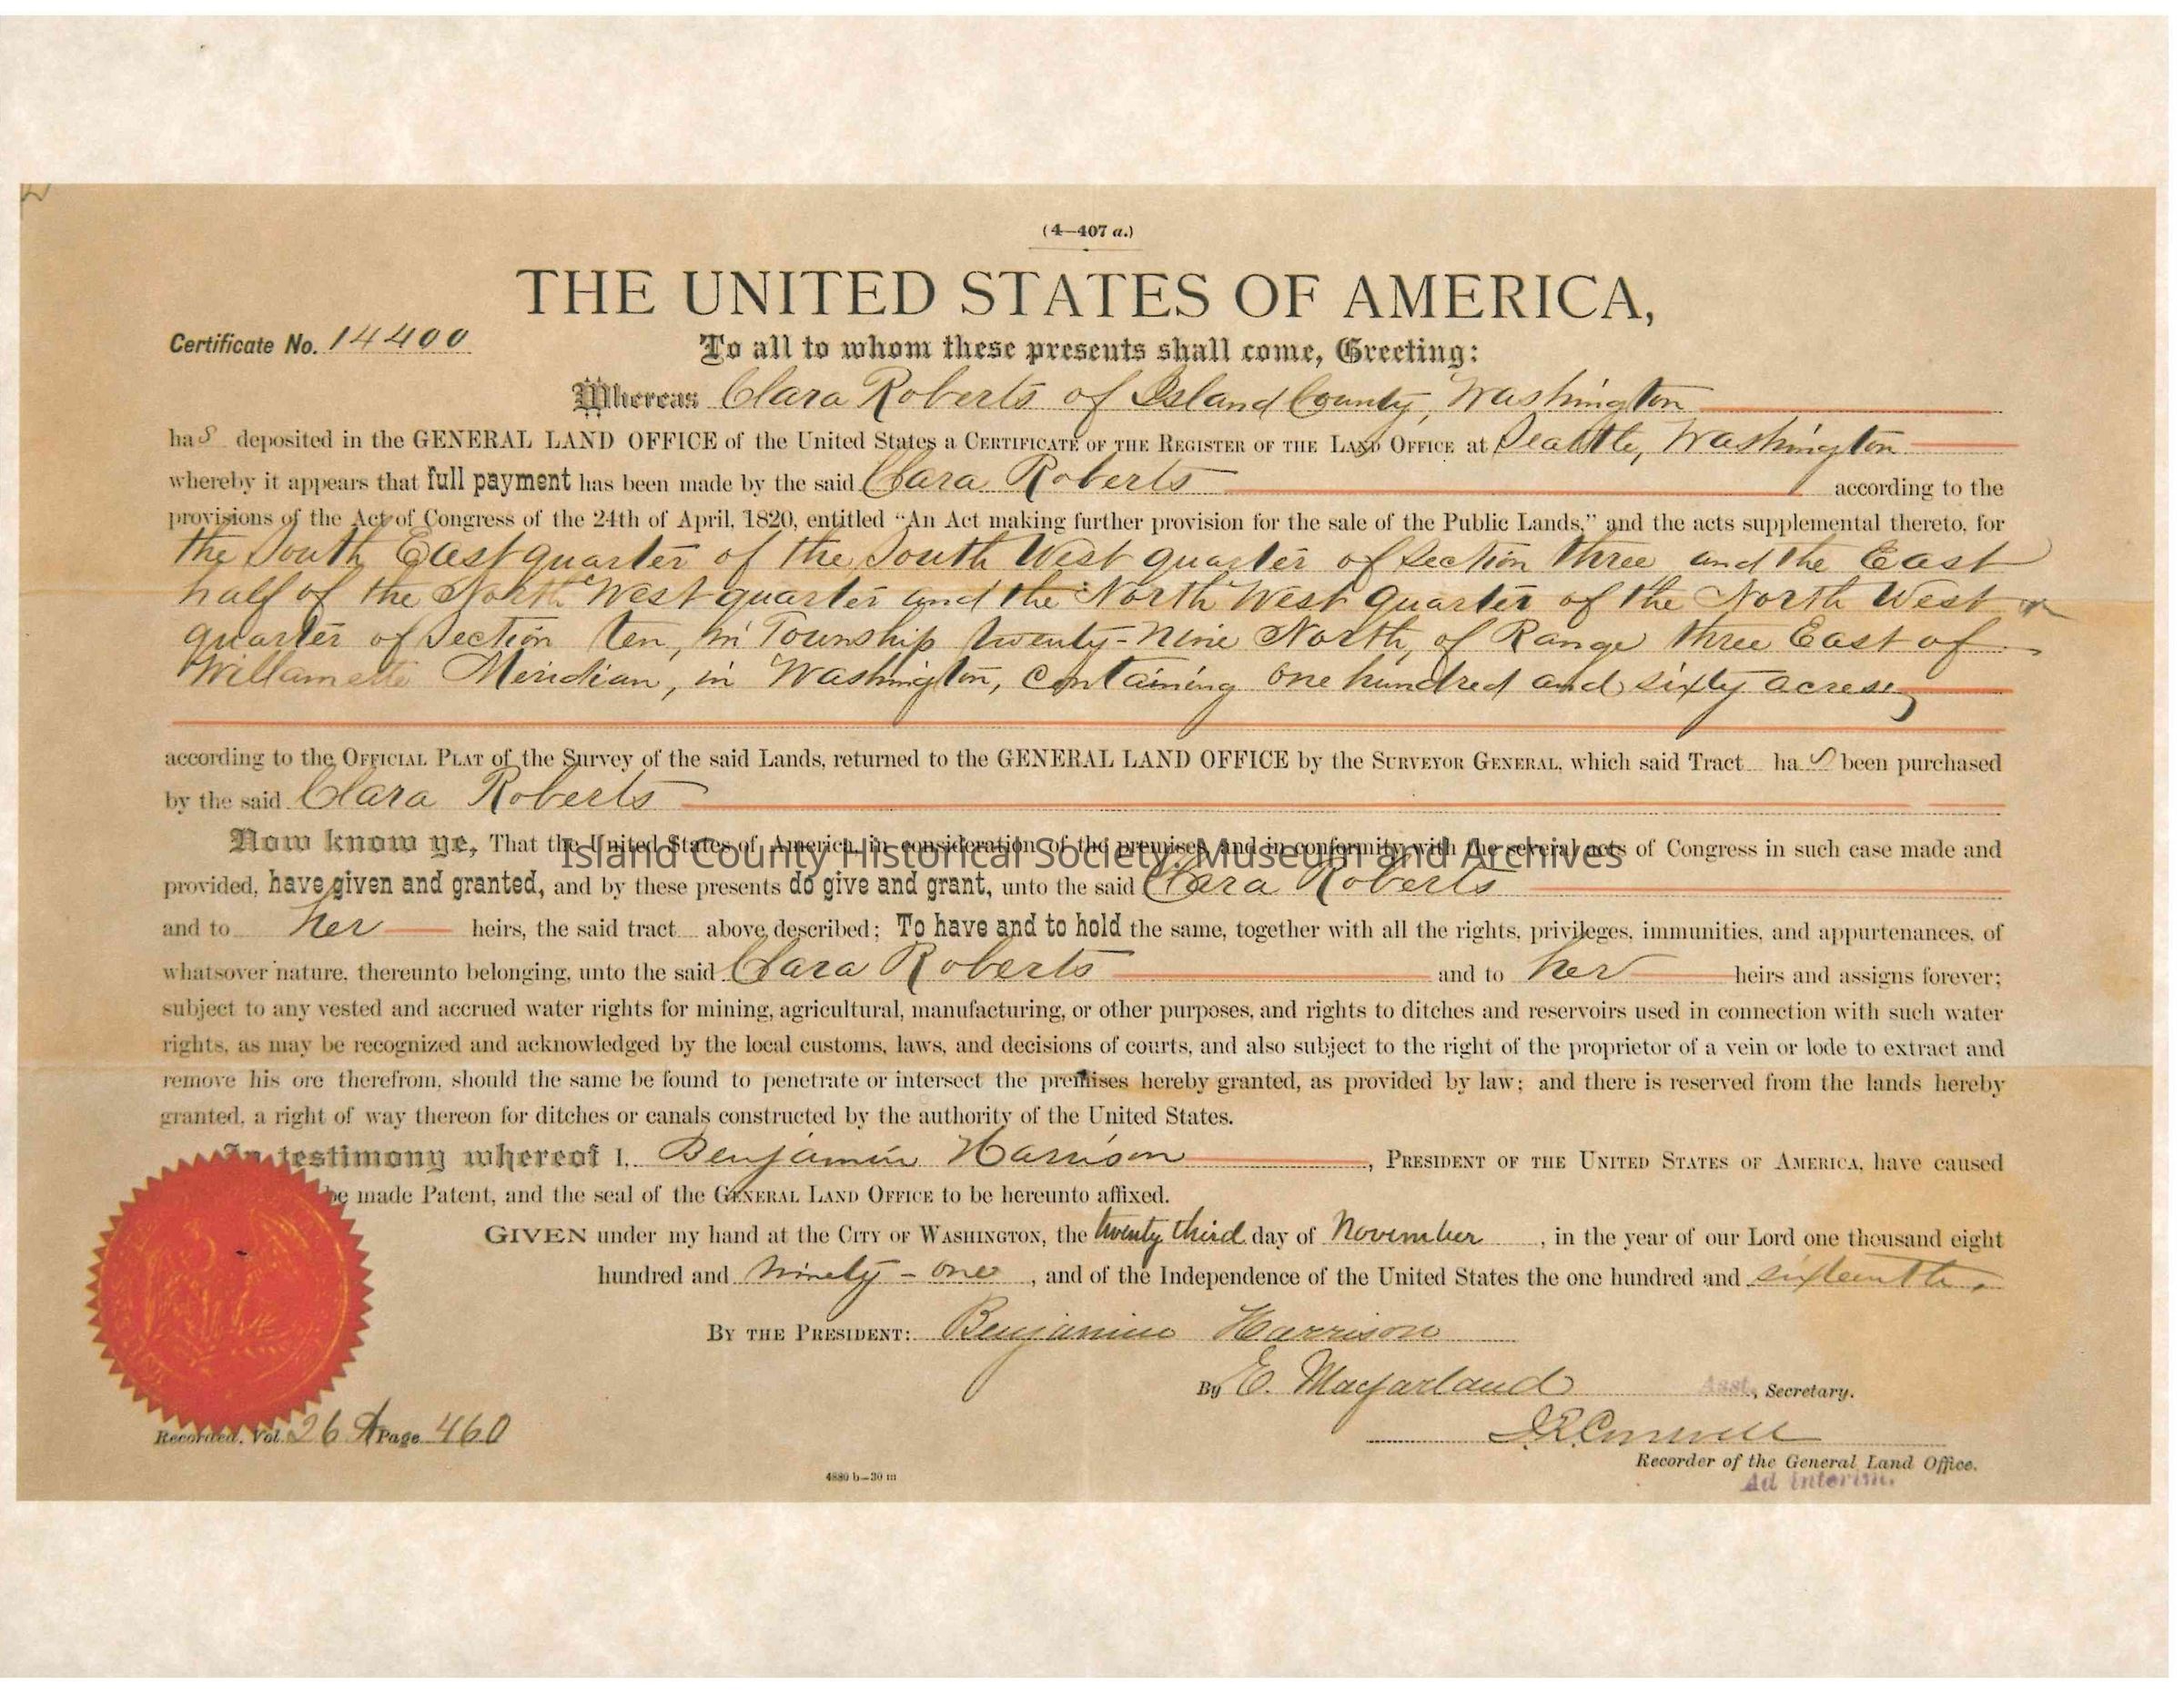 (4—407 a.)
THE UNITED STATES OF AMERICA,
Certificate No. 14400
To all to whom these presents shall come, Greeting:
Whereas Clara Roberts of Island County, Washington
has deposited in the GENERAL LAND OFFICE of the United States a CERTIFICATE OF THE REGISTER OF THE LAND OFFICE at Seattle, Washington
whereby it appears that full payment has been made by the said Clara Roberts according to the
provisions of the Act of Congress of the 24th of April, 1820, entitled “An Act making further provision for the sale of the Public Lands,” and the acts supplemental thereto, for
the South East quarter of the South West quarter of Section three and the East
half of the North West quarter and the North West quarter of the North West
quarter of Section ten, in Township twenty-nine North, of Range three East of
Willamette Meridian, in Washington, containing one hundred and sixty acres,
according to the OFFICIAL PLAT of the Survey of the said Lands, returned to the GENERAL LAND OFFICE by the SURVEYOR GENERAL, which said Tract has been purchased
by the said Clara Roberts
Now know ye, That the United States of America, in consideration of the premises, and in conformity with the several acts of Congress in such case made and
Island County Historical Society, Museum and Archives
provided, have given and granted, and by these presents do give and grant, unto the said Clara Roberts
and to her heirs, the said tract above described; To have and to hold the same, together with all the rights, privileges, immunities, and appurtenances, of
whatsover nature, thereunto belonging, unto the said Clara Roberts and to her heirs and assigns forever;
subject to any vested and accrued water rights for mining, agricultural, manufacturing, or other purposes, and rights to ditches and reservoirs used in connection with such water
rights, as may be recognized and acknowledged by the local customs, laws, and decisions of courts, and also subject to the right of the proprietor of a vein or lode to extract and
remove his ore therefrom, should the same be found to penetrate or intersect the premises hereby granted, as provided by law; and there is reserved from the lands hereby
granted, a right of way thereon for ditches or canals constructed by the authority of the United States.
In testimony whereof I, Benjamin Harrison, PRESIDENT OF THE UNITED STATES OF AMERICA, have caused
be made Patent, and the seal of the GENERAL LAND OFFICE to be hereunto affixed.
GIVEN under my hand at the CITY OF WASHINGTON, the twenty third day of November, in the year of our Lord one thousand eight
hundred and ninety-one, and of the Independence of the United States the one hundred and sixteenth.
BY THE PRESIDENT: Benjamin Harrison
By E. Macfarland Asst., Secretary.
Recorded, Vol. 26 Page 460
Recorder of the General Land Office.
Ad interim.
4880 b—30 m